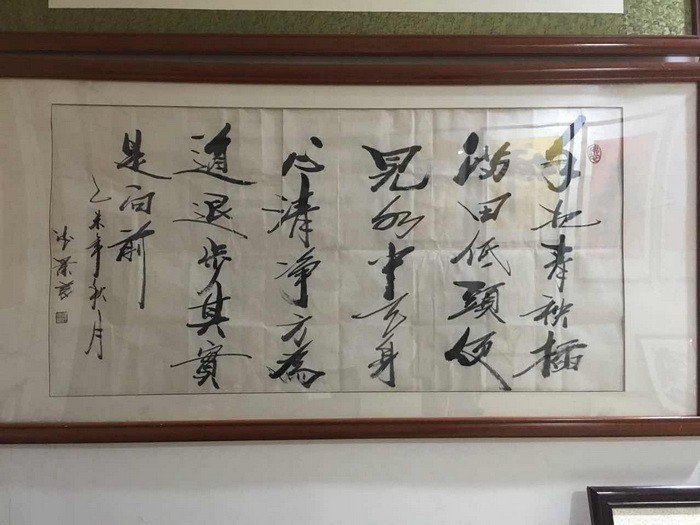 手把青秧插
满田低頭便
見水中天身
心清净方為
道退步其實
是向前
乙未年秋月